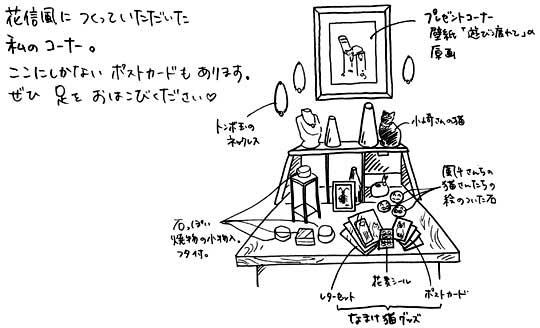 花信風に つくっていただいた
私のコーナー。
ここにしかない ポストカードも あります。
ぜひ 足を おはこびください♡
プレゼントコーナー
壁紙「遊び疲れて」の
原画
トンボ玉の
ネックレス
小崎さんの猫
猫さんたちの
絵のついた石
石っぽい
焼物の小物入。
フタ付。
レターセット
花景シール
ポストカード
なまけ猫グッズ